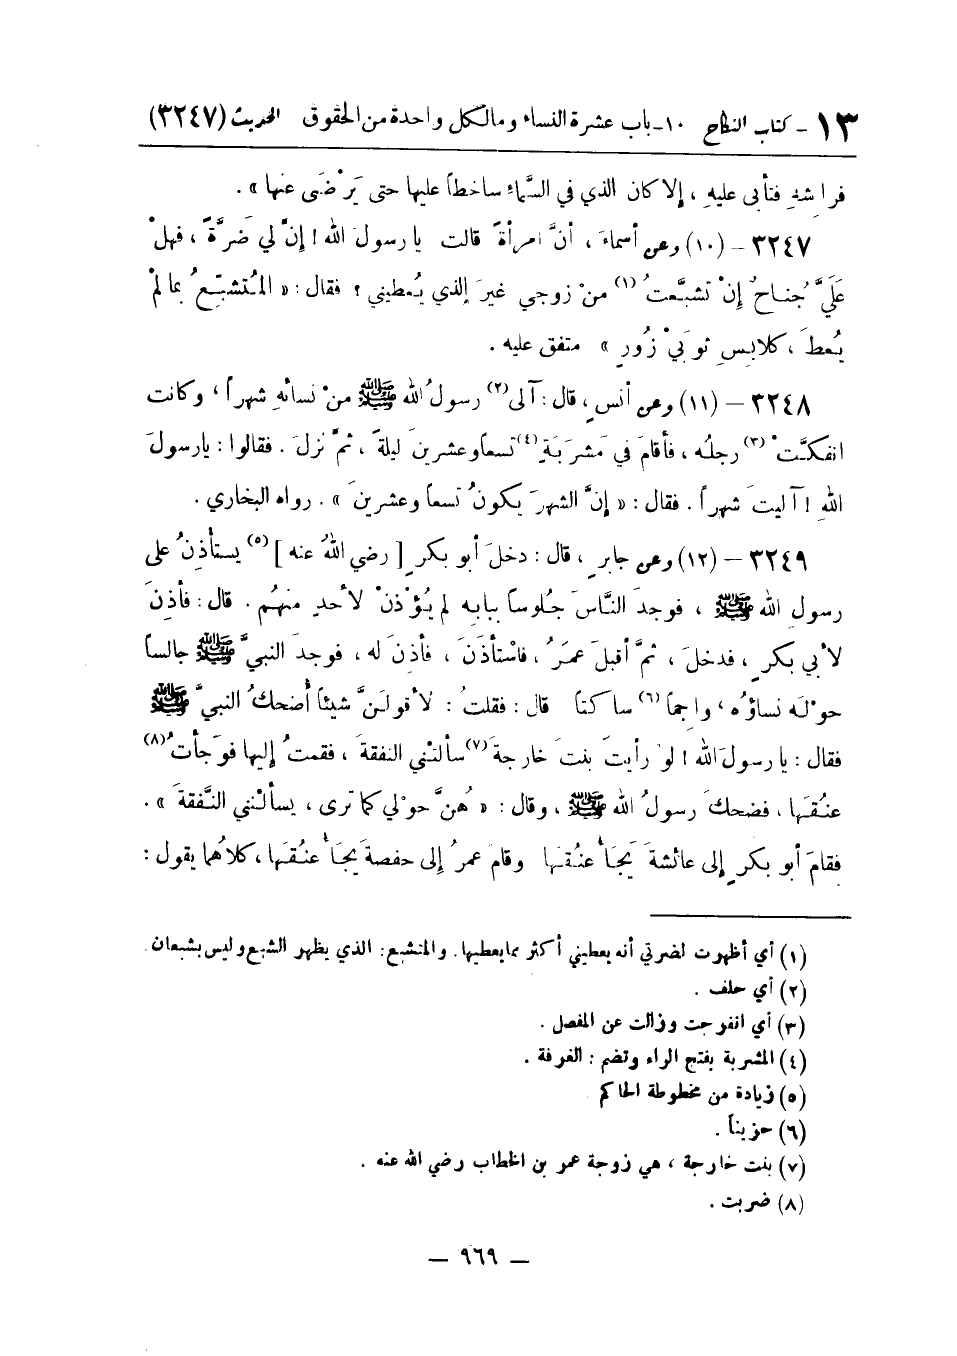 ١٣ - كتاب النكاح ١٠ - باب عشرة النساء ومالكل واحدة من الحقوق الحديث (٣٢٤٧)
فراشهِ فتأبى عليهِ ، إلا كان الذي في السَّماءِ ساخطاً عليها حتى يَرْضَى عنها » .
٣٢٤٧ – (١٠) وعن أسماءَ ، أنَّ امرأةً قالت يا رسولَ الله ! إنَّ لي ضَرَّةً ، فهلْ
عَلَيَّ جُناحٌ إنْ تشبَّعتُ (١) منْ زوجي غيرَ الذي يُعطيني ؟ فقال : « المُتشبِّعُ بما لمْ
يُعطَ ، كلابسِ ثوبَيْ زُورٍ » متفق عليه .
٣٢٤٨ – (١١) وعن أنسٍ ، قال : آلى (٢) رسولُ الله ﷺ منْ نسائهِ شهراً ، وكانت
انفكَّتْ (٣) رجلُه ، فأقامَ في مَشرَبَةٍ (٤) تسعاً وعشرينَ ليلةً ، ثمَّ نزلَ . فقالوا : يا رسولَ
اللهِ ! آليتَ شهراً . فقال : « إنَّ الشهرَ يكونُ تسعاً وعشرينَ » . رواه البخاري .
٣٢٤٩ – (١٢) وعن جابرٍ ، قال : دخلَ أبو بكرٍ [ رضي اللهُ عنه ] (٥) يستأذِنُ على
رسولِ الله ﷺ ، فوجدَ النَّاسَ جُلوساً ببابِه لم يُؤْذنْ لأحدٍ منهُم . قال : فأذِنَ
لأبي بكرٍ ، فدخلَ ، ثمَّ أقبلَ عمَرُ ، فاسْتأذَنَ ، فأذِنَ له ، فوجدَ النبيَّ ﷺ جالساً
حوْلَه نساؤُه ، واجِماً (٦) ساكتاً قال : فقلتُ : لأقولَنَّ شيئاً أُضحكُ النبيَّ ﷺ
فقال : يا رسولَ الله ! لوْ رأيتَ بنتَ خارجةَ (٧) سألتْني النفقةَ ، فقمتُ إليها فوَجأتُ (٨)
عنُقَها ، فضحكَ رسولُ الله ﷺ ، وقال : « هُنَّ حوْلي كما ترى ، يسألْنني النَّفقةَ » .
فقامَ أبو بكرٍ إلى عائشةَ يَجَأُ عنُقَها وقامَ عمرُ إلى حفصةَ يجَأُ عنُقَها ، كلاهُما يقول :
(١) أي أظهرت لضرتي أنه يعطيني أكثر مما يعطيها . والمتشبع : الذي يظهر الشبع وليس بشبعان .
(٢) أي حلف .
(٣) أي انفرجت وزالت عن المفصل .
(٤) المشربة بفتح الراء وتضم : الغرفة .
(٥) زيادة من مخطوطة الحاكم
(٦) حزيناً .
(٧) بنت خارجة ، هي زوجة عمر بن الخطاب رضي الله عنه .
(٨) ضربت .
– ٩٦٩ –